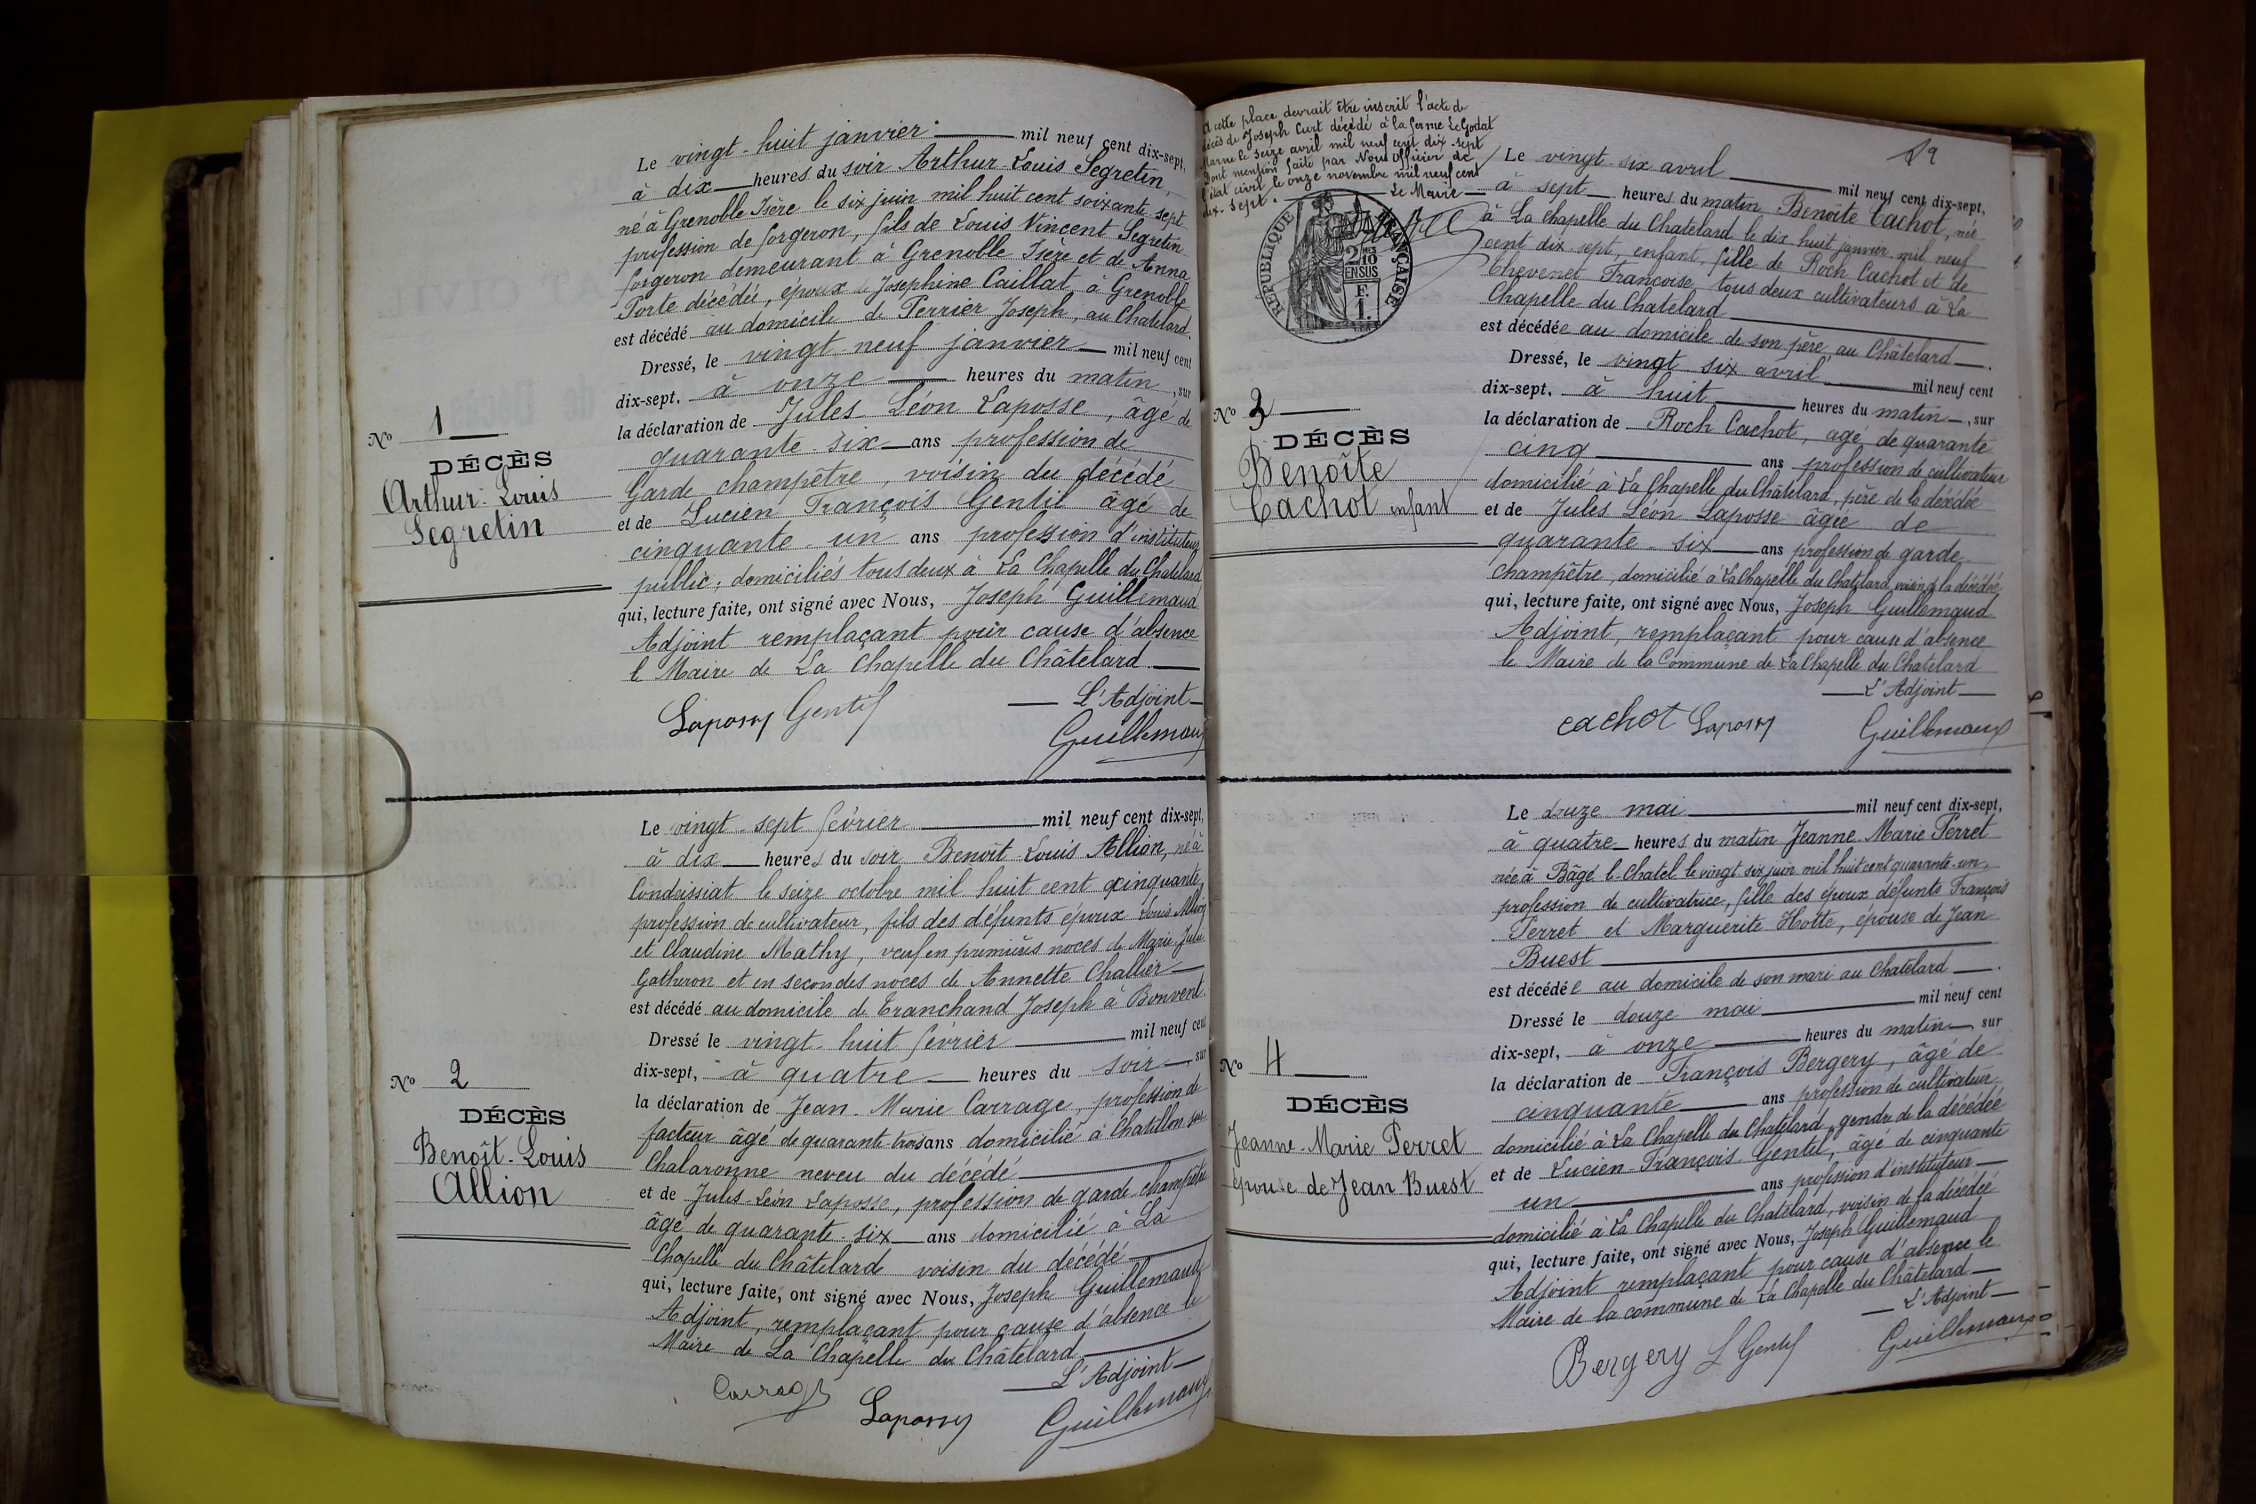 Le vingt-huit janvier mil neuf cent dix-sept,
à dix heures du soir Arthur-Louis Segretin,
né à Grenoble Isère le six juin mil huit cent soixante sept
profession de forgeron, fils de Louis Vincent Segretin
forgeron demeurant à Grenoble Isère et de Anna
Porte décédée, époux de Josephine Caillat, à Grenoble
est décédé au domicile de Perrier Joseph, au Chatelard.
Dressé, le vingt neuf janvier mil neuf cent
dix-sept, à onze heures du matin, sur
la déclaration de Jules Léon Laposse, âgé de
quarante-six ans profession de
Garde champêtre, voisin du décédé
et de Lucien François Gentil âgé de
cinquante-un ans profession d'instituteur
public; domiciliés tous deux à La Chapelle du Chatelard
qui, lecture faite, ont signé avec Nous, Joseph Guillemaud
Adjoint remplaçant pour cause d'absence
le Maire de La Chapelle du Châtelard.
L'Adjoint
Laposse Gentil Guillemaud
No 1
DÉCÈS
Arthur-Louis
Segretin
Le vingt-sept février mil neuf cent dix-sept,
à dix heures du soir Benoît-Louis Allion, né à
Condeissiat le seize octobre mil huit cent cinquante
profession de cultivateur, fils des défunts époux Louis Allion
et Claudine Mathy, veuf en premières noces de Marie Julie
Gatheron et en secondes noces de Annette Challier
est décédé au domicile de Tranchand Joseph à Bonvent
Dressé le vingt-huit février mil neuf cent
dix-sept, à quatre heures du soir, sur
la déclaration de Jean-Marie Carrage, profession de
facteur âgé de quarante-trois ans domicilié à Chatillon sur
Chalaronne neveu du décédé
et de Jules-Léon Laposse, profession de garde champêtre
âgé de quarante-six ans domicilié à La
Chapelle du Châtelard voisin du décédé
qui, lecture faite, ont signé avec Nous, Joseph Guillemaud
Adjoint, remplaçant pour cause d'absence le
Maire de La Chapelle du Châtelard.
L'Adjoint
Carrage Laposse Guillemaud
No 2
DÉCÈS
Benoît-Louis
Allion
A cette place devrait être inscrit l'acte de
décès de Joseph Curt décédé à la ferme Le Godat
Marne le seize avril mil neuf cent dix-sept
Dont mention faite par Nous Officier de
l'état civil le onze novembre mil neuf cent
dix-sept.
Le Maire
RÉPUBLIQUE FRANÇAISE
2/10
EN SUS
F.
1.
Le vingt-six avril mil neuf cent dix-sept,
à sept heures du matin Benoîte Cachot, née
à La Chapelle du Chatelard le dix huit janvier mil neuf
cent dix-sept, enfant, fille de Roch Cachot et de
Chevenet Françoise, tous deux cultivateurs à La
Chapelle du Chatelard
est décédée au domicile de son père, au Châtelard.
Dressé, le vingt six avril mil neuf cent
dix-sept, à huit heures du matin, sur
la déclaration de Roch Cachot, agé de quarante
cinq ans profession de cultivateur
domicilié à La Chapelle du Châtelard, père de la décédée
et de Jules Léon Laposse âgée de
quarante-six ans profession de garde
champêtre, domicilié à La Chapelle du Chatelard voisin de la décédée
qui, lecture faite, ont signé avec Nous, Joseph Guillemaud
Adjoint, remplaçant pour cause d'absence
le Maire de la Commune de La Chapelle du Chatelard
L'Adjoint
cachot Laposse Guillemaud
No 3
DÉCÈS
Benoîte
Cachot enfant
Le douze mai mil neuf cent dix-sept,
à quatre heures du matin Jeanne-Marie Perret
née à Bâgé-le-Chatel le vingt-six juin mil huit cent quarante-un,
profession de cultivatrice, fille des époux défunts François
Perret et Marguerite Hotte, épouse de Jean
Buest
est décédée au domicile de son mari au Chatelard.
Dressé le douze mai mil neuf cent
dix-sept, à onze heures du matin, sur
la déclaration de François Bergery, âgé de
cinquante ans profession de cultivateur
domicilié à La Chapelle du Chatelard, gendre de la décédée
et de Lucien-François Gentil, âgé de cinquante
un ans profession d'instituteur
domicilié à La Chapelle du Chatelard, voisin de la décédée
qui, lecture faite, ont signé avec Nous, Joseph Guillemaud
Adjoint remplaçant pour cause d'absence le
Maire de la commune de La Chapelle du Châtelard
L'Adjoint
Bergery L Gentil Guillemaud
No 4
DÉCÈS
Jeanne-Marie Perret
épouse de Jean Buest